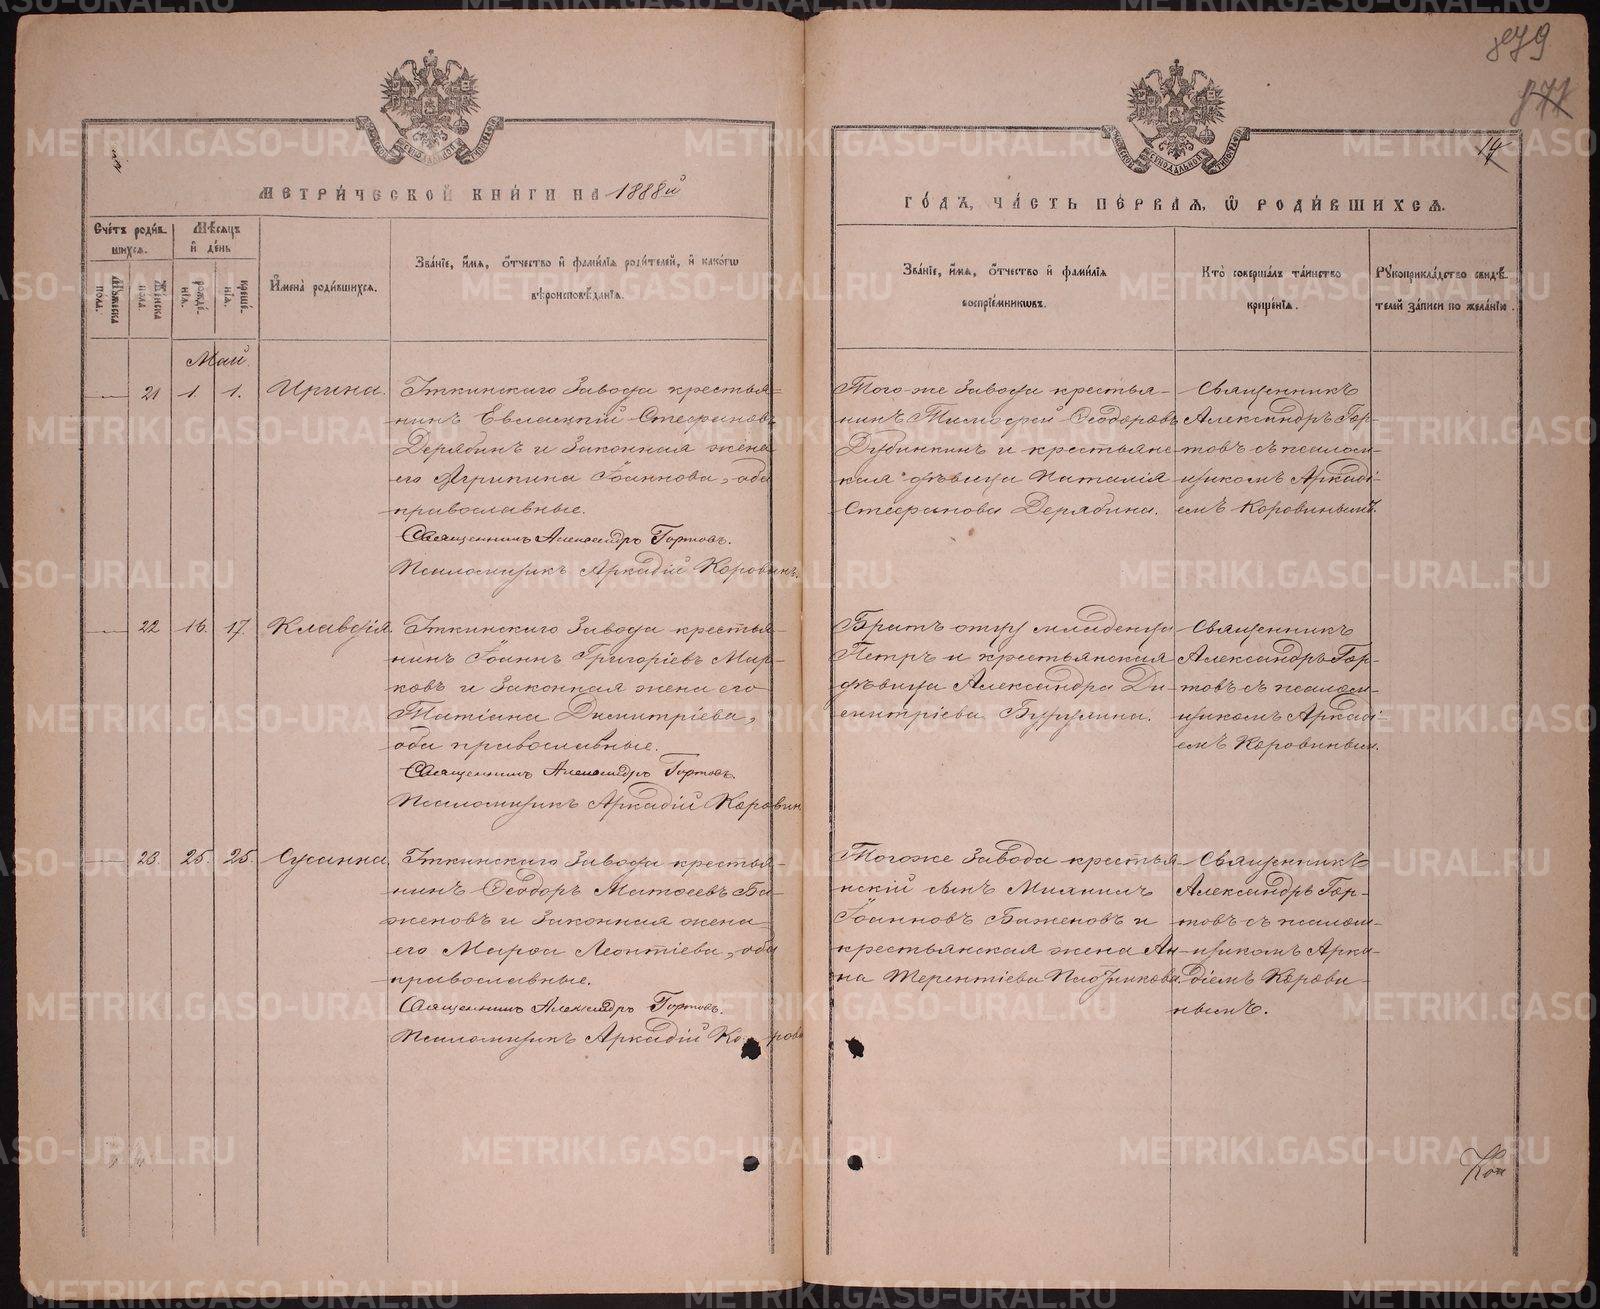 879
871
14
МЕТРИ́ЧЕСКОЙ КНИ́ГИ НА 1888й
ГО́ДЪ, ЧА́СТЬ ПЕ́РВАЯ, Ѡ РОДИ́ВШИХСЯ.
Сче́тъ роди́вшихся.
Мꙋжеска пола.
Женска пола.
Мѣсяцъ и҆ де́нь
рожде́нїя.
креще́нїя.
И҆мена̀ роди́вшихся.
Зва́нїе, и҆́мя, ѻ҆́тчество и҆ фами́лїя роди́телей, и҆ како́гѡ
вѣроисповѣ́данїя.
Зва́нїе, и҆́мя, ѻ҆́тчество и҆ фами́лїя
воспрїе́мникѡвъ.
Кто̀ соверша́лъ та́инство
креще́нїя.
Рꙋкоприкла́дство свидѣ́телей за́писи по жела́нїю.
Май
21 1. 1. Ирина.
Иткинскаго Завода крестья-
нинъ Евлампій Стефановъ
Дерябинъ и законная жена
его Агрипина Іоаннова, оба
православные.
Священникъ Александръ Гортовъ.
Псаломщикъ Аркадій Коровинъ.
Того-же завода крестья-
нинъ Тимофей Ѳеодоровъ
Дубинкинъ и крестьянс-
кая дѣвица Наталія
Стефанова Дерябина.
Священникъ
Александръ Гор-
товъ съ псалом-
щикомъ Аркаді-
емъ Коровинымъ.
22 16. 17. Клавдія.
Иткинскаго Завода крестья-
нинъ Іоаннъ Григоріевъ Мар-
ковъ и законная жена его
Татіана Димитріева,
оба православные.
Священникъ Александръ Гортовъ.
Псаломщикъ Аркадій Коровин
Братъ отцу младенца
Петръ и крестьянская
дѣвица Александра Ди-
митріева
Священникъ
Александръ Гор-
товъ съ псалом-
щикомъ Аркаді-
емъ Коровиным.
23. 25. 25. Сусанна
Иткинскаго Завода крестья-
нинъ Ѳеодоръ Матѳеевъ Ба-
женовъ и законная жена
его Марѳа Леонтіева, оба
православные.
Священникъ Александръ Гортовъ.
Псаломщикъ Аркадій Корови
Тогоже завода крестья-
нскій сынъ Михаилъ
Іоанновъ Баженовъ и
крестьянская жена Ан-
на Терентіева Плотникова.
Священникъ
Александръ Гор-
товъ съ псалом-
щикомъ Арка-
діемъ Корови-
нымъ.
METRIKI.GASO-URAL.RU